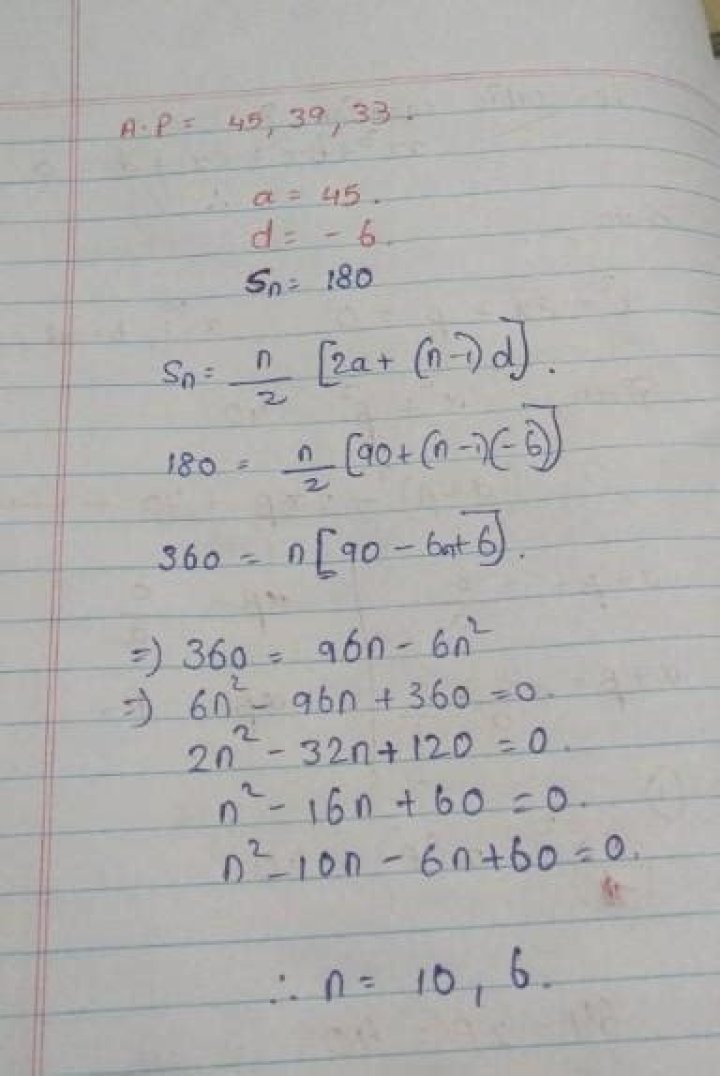 A.P = 45, 39, 33.
∴ a = 45.
d = - 6.
Sn = 180
Sn = n/2 [2a + (n-1) d].
180 = n/2 [90 + (n-1)(-6)]
360 = n[90 - 6n + 6].
=) 360 = 96n - 6n²
=) 6n² - 96n + 360 = 0.
2n² - 32n + 120 = 0.
n² - 16n + 60 = 0.
n² - 10n - 6n + 60 = 0.
∴ n = 10, 6.